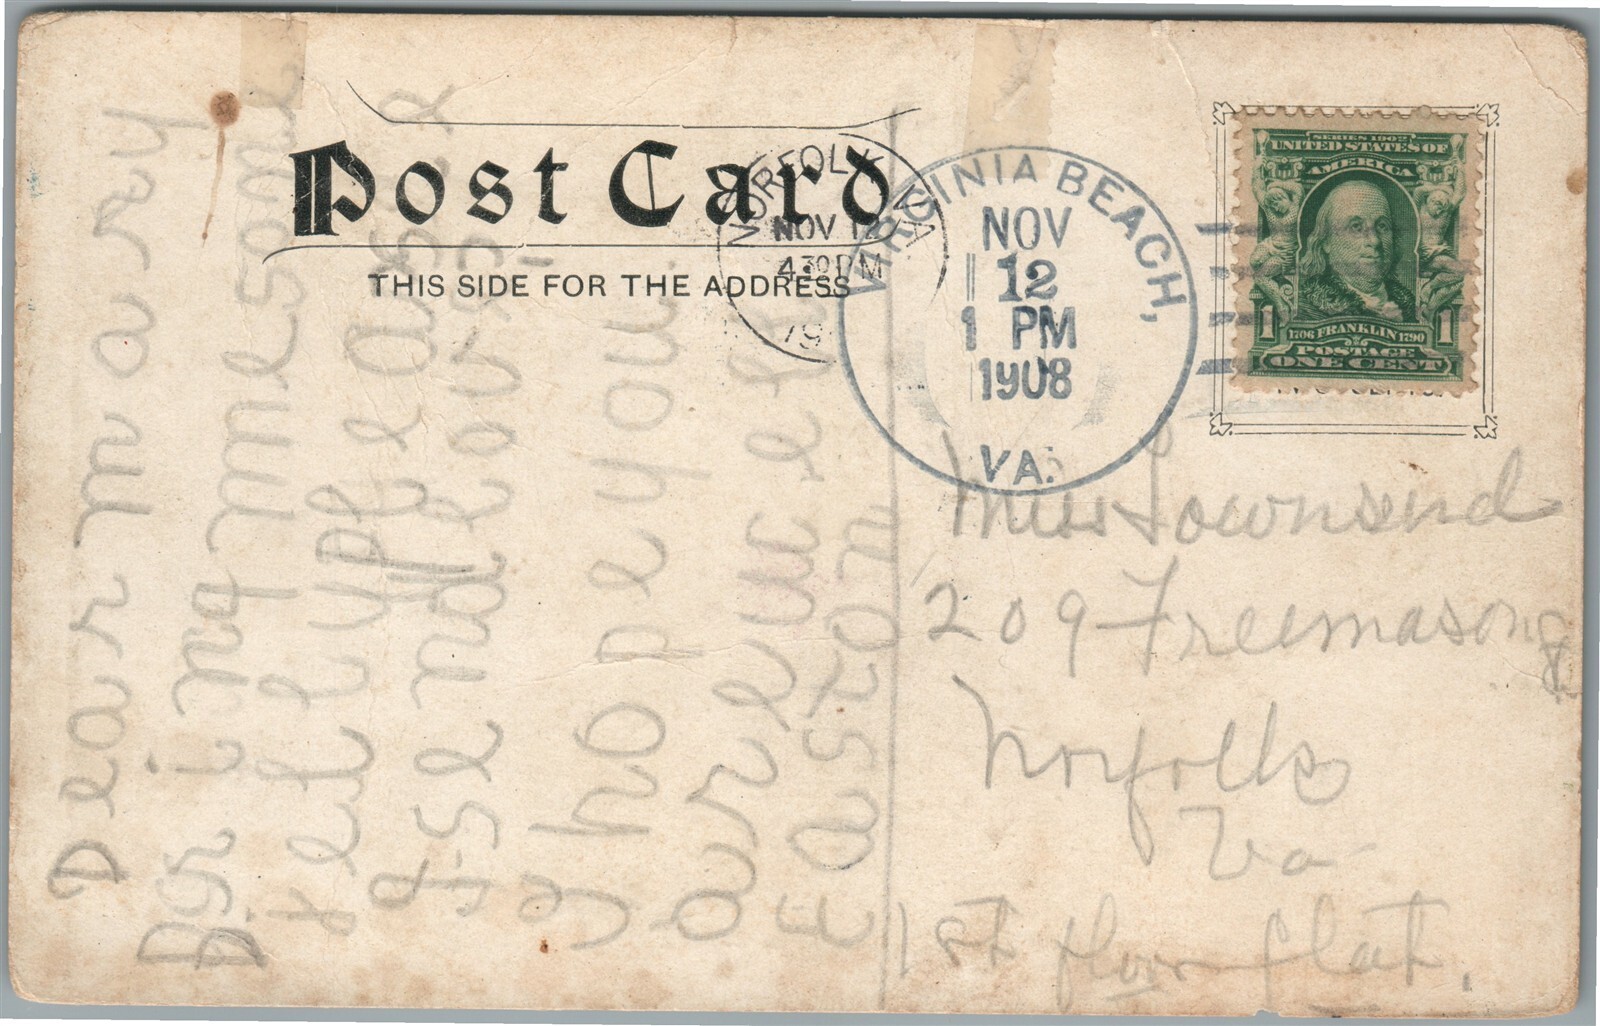 Post Card
THIS SIDE FOR THE ADDRESS
NORFOLK VA
NOV 12
4 30 PM
19
VIRGINIA BEACH,
NOV
12
1 PM
1908
VA.
SERIES 1902
UNITED STATES OF
AMERICA
1 1
1706 FRANKLIN 1790
POSTAGE
ONE CENT
Dear mary
Bring me some
please
I send
I hope you
are well
Easton
Miss Townsend
209 Freemason
Norfolk
Va
1st floor flat.